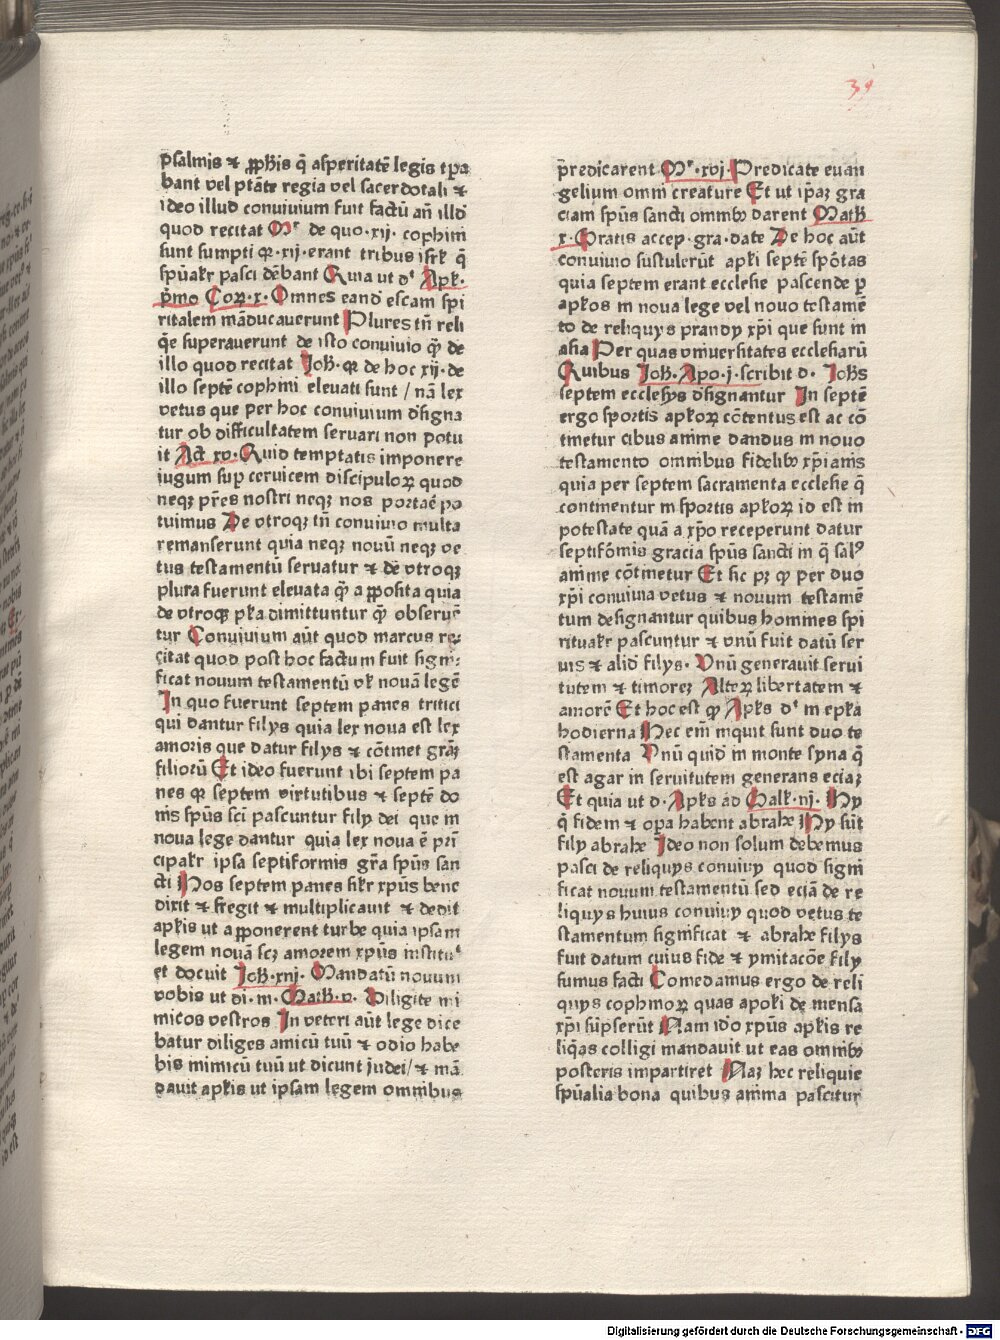 39
psalmis ⁊ ꝓphīs q̄ asperitatē legis tp̄a
bant vel ptāte regia vel sacerdotali ⁊
ideo illud conuiuium fuit factū añ illđ
quod recitat Mʳ de quo·xij· cophini
sunt sumpti qꝛ·xij·erant tribus isrł q̄
spūalr pasci dēbant Quia ut dᵗ Apł·
pͥmo Coꝝ·x·Omnes eandē escam spi
ritalem māducauerunt Plures tn̄ reli
q̄e superauerunt de isto conuiuio qͣ de
illo quod recitat Joh̄· qꝛ de hoc xij·de
illo septē cophini eleuati sunt / nā lex
vetus que per hoc conuiuium dsigna
tur ob difficultatem seruari non potu
it Act̄ xv·Quid temptatis imponere
iugum sup ceruicem discipuloꝝ quod
neqꝫ pr̄es nostri neqꝫ nos portae po
tuimus De vtroqꝫ tn̄ conuiuio multa
remanserunt quia neqꝫ nouū neqꝫ ve
tus testamentū seruatur ⁊ de vtroqꝫ
plura fuerunt eleuata qͣ apposita quia
de vtroqꝫ pła dimittuntur qͣ obseruē
tur Conuiuium aūt quod marcus re⸗
citat quod post hoc factum fuit signi⸗
ficat nouum testamentū vł nouā legē
In quo fuerunt septem panes tritici
qui dantur filys quia lex noua est lex
amoris que datur filys ⁊ cōtinet grāꝫ
filiorū Et ideo fuerunt ibi septem pa
nes qꝛ septem virtutibus ⁊ septē do
nis spūs sci pascuntur fily dei que in
noua lege dantur quia lex noua ē prin̄
cipalr ipsa septiformis gr̄a spūs san
cti Hos septem panes silr xpūs bene
dixit ⁊ fregit ⁊ multiplicauit ⁊ dedit
apłis ut apponerent turbe quia ipsam
legem nouā scꝫ amorem xpūs instituᵗ
et docuit Joh̄·xiij· Mandatū nouum
vobis ut di·m·Math̄·v· Diligite ini
micos vestros In veteri aūt lege dice
batur diliges amicū tuū ⁊ odio habe
bis inimicū tuū ut dicunt judei/ ⁊ mā
dauit apłis ut ipsam legem omnibus
p̄dicarent Mʳ·xvj·Predicate euan
gelium omni creature Et ut ipaꝫ gra
ciam spūs sancti omnibꝫ darent Math̄
x·Gratis accep·gra·date De hoc aūt
conuiuio sustulerūt apłi septē spōtas
quia septem erant ecclesie pascende p̄
apłos in noua lege vel nouo testamē
to de reliquys prandy xp̄i que sunt in
asia Per quas vniuersitates ecclesiarū
Quibus Joh̄·Apo·j·scribit d· Joh̄s
septem ecclesys dsignantur In septē
ergo sportis apłoꝝ cōtentus est ac cō
tinetur cibus anime dandus in nouo
testamento omnibus fidelibꝫ xp̄ianis
quia per septem sacramenta ecclesie q̄
continentur in sportis apłoꝝ id est in
potestate quā a xp̄o receperunt datur
septiformis gracia spūs sancti in q̄ salꝰ
anime cōtinetur Et sic pꝫ qͦ per duo
xp̄i conuiuia vetus ⁊ nouum testamē
tum designantur quibus homines spi
ritualr pascuntur ⁊ vnū fuit datū ser
uis ⁊ aliđ filys· Vnū generauit serui
tutem ⁊ timoreꝫ Alteꝝ libertatem ⁊
amorē Et hoc est qͦ Apłs dᵗ in epła
hodierna Hec eni inquit sunt duo te
stamenta Vnū quid in monte syna q̄
est agar in seruitutem generans eciaꝫ
Et quia ut d· Apłs ad Galł·iij· Hy
q̄ fidem ⁊ opa habent abrahe Hy sūt
fily abrahe Ideo non solum debemus
pasci de reliquys conuiuy quod signi
ficat nouum testamentū sed eciā de re
liquys huius conuiuy quod vetus te
stamentum significat ⁊ abrahe filys
fuit datum cuius fide ⁊ ymitacōe fily
sumus facti Comedamus ergo de reli
quys cophinoꝝ quas apołi de mensa
xp̄i sūpserūt Nam iđo xpūs apłis re
liq̄as colligi mandauit ut eas omnibꝫ
posteris impartiret Naꝫ hec reliquie
spūalia bona quibus anima pascitur
Digitalisierung gefördert durch die Deutsche Forschungsgemeinschaft - DFG